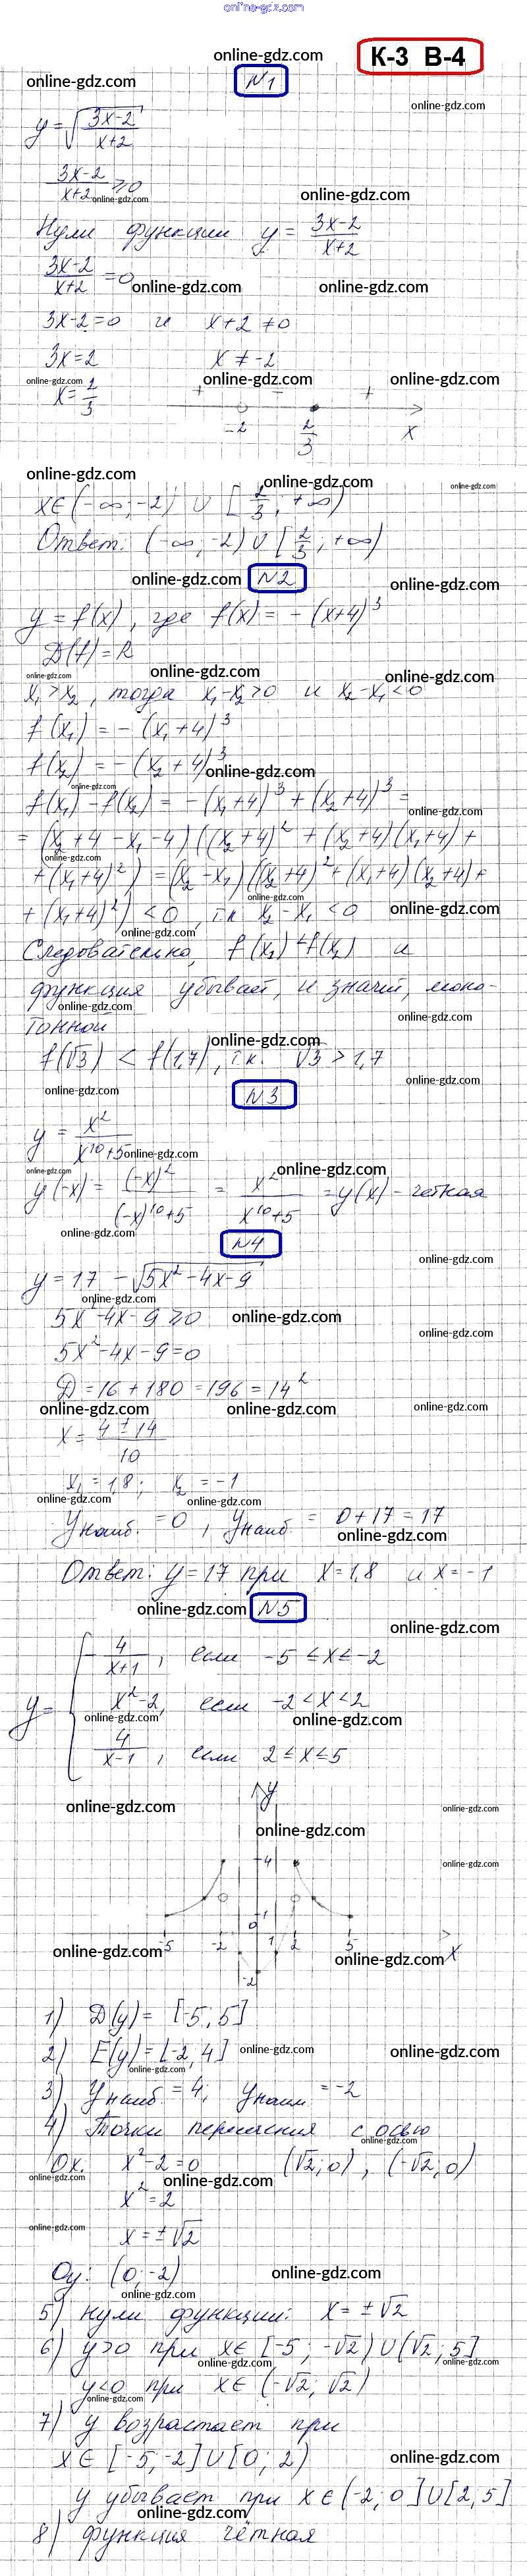 online-gdz.com
online-gdz.com
К-3 В-4
online-gdz.com
N1
online-gdz.com
y = √(3x-2 / x+2)
3x-2 / x+2 ≥ 0
online-gdz.com
online-gdz.com
Нули функции y = 3x-2 / x+2
3x-2 / x+2 = 0
online-gdz.com
online-gdz.com
3x-2=0 и x+2≠0
3x=2 x≠-2
online-gdz.com
online-gdz.com
online-gdz.com
x = 2/3
+ - +
-2 2/3 x
online-gdz.com
online-gdz.com
online-gdz.com
x∈(-∞;-2) ∪ [2/3; +∞)
Ответ: (-∞;-2) ∪ [2/3; +∞)
online-gdz.com
N2
online-gdz.com
y = f(x), где f(x) = -(x+4)³
D(f) = R
online-gdz.com
online-gdz.com
online-gdz.com
x₁>x₂, тогда x₁-x₂>0 и x₂-x₁<0
f(x₁) = -(x₁+4)³
f(x₂) = -(x₂+4)³
online-gdz.com
online-gdz.com
f(x₁)-f(x₂) = -(x₁+4)³+(x₂+4)³ =
online-gdz.com
= (x₂+4-x₁-4)((x₂+4)²+(x₂+4)(x₁+4)+
online-gdz.com
+(x₁+4)²) = (x₂-x₁)((x₂+4)²+(x₁+4)(x₂+4)+
online-gdz.com
+(x₁+4)²) <0, т.к x₂-x₁<0
online-gdz.com
online-gdz.com
Следовательно, f(x₁)<f(x₂) и
функция убывает, и значит, моно-
online-gdz.com
online-gdz.com
тонной
online-gdz.com
f(√3) < f(1,7), т.к. √3 > 1,7
online-gdz.com
online-gdz.com
N3
y = x² / x¹⁰+5
online-gdz.com
online-gdz.com
online-gdz.com
y(-x) = (-x)² / (-x)¹⁰+5 = x² / x¹⁰+5 = y(x) - четная
online-gdz.com
N4
online-gdz.com
y = 17 - √(5x²-4x-9)
online-gdz.com
5x²-4x-9≥0
online-gdz.com
online-gdz.com
5x²-4x-9=0
D = 16+180 = 196 = 14²
online-gdz.com
online-gdz.com
online-gdz.com
x = 4±14 / 10
x₁ = 1,8; x₂ = -1
online-gdz.com
online-gdz.com
yнаиб. = 0, yнаиб. = 0+17 = 17
online-gdz.com
Ответ: y=17 при x=1,8 и x=-1
online-gdz.com
N5
online-gdz.com
-4 / x+1, если -5≤x≤-2
y = x²-2, если -2<x<2
online-gdz.com
online-gdz.com
4 / x-1, если 2≤x≤5
y
online-gdz.com
online-gdz.com
online-gdz.com
4
online-gdz.com
1
0
-5 -2 1 2 5 x
online-gdz.com
online-gdz.com
-2
1) D(y) = [-5; 5]
2) E(y) = [-2, 4]
online-gdz.com
online-gdz.com
online-gdz.com
3) yнаиб = 4; yнаим = -2
4) Точки пересечения с осью
online-gdz.com
Ox: x²-2=0 (√2; 0), (-√2; 0)
online-gdz.com
online-gdz.com
x² = 2
online-gdz.com
x = ±√2
Oy: (0; -2)
online-gdz.com
online-gdz.com
5) нули функции: x = ±√2
6) y>0 при x∈[-5; -√2) ∪ (√2; 5]
online-gdz.com
online-gdz.com
y<0 при x∈(-√2; √2)
online-gdz.com
7) y возрастает при
x∈[-5,-2] ∪ [0; 2)
online-gdz.com
y убывает при x∈(-2; 0] ∪ [2, 5]
online-gdz.com
8) функция чётная